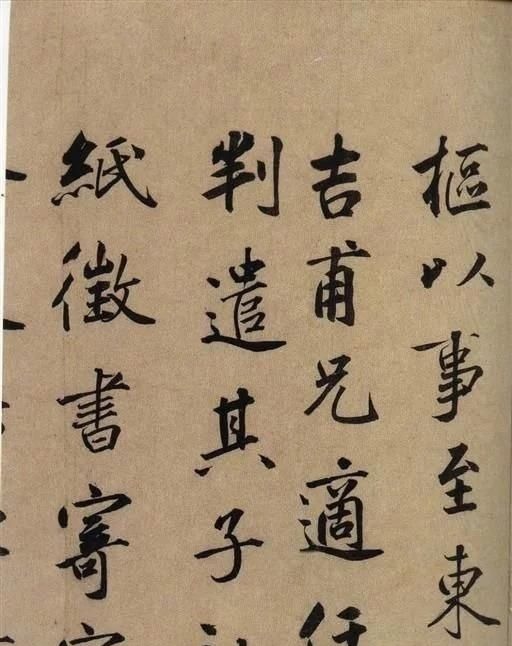 樞以事至東
吉甫兄適任
判遣其子
紙徵書寄